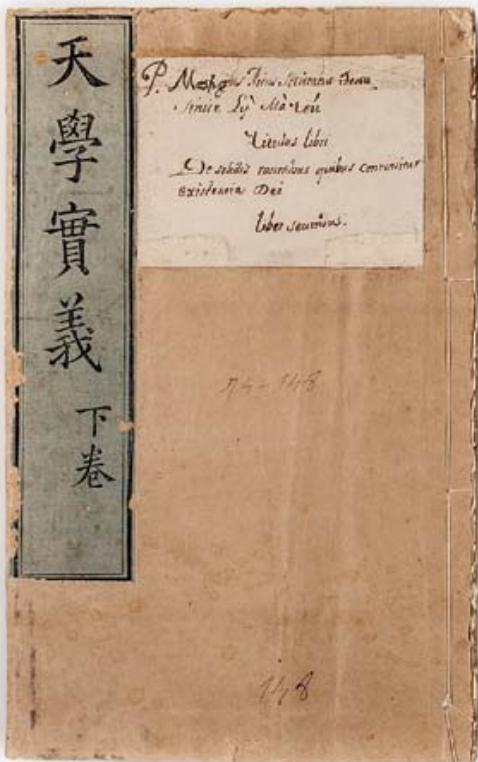 天學實義
下卷
P. Matthæus Ricius Societatis Jesu
Sinice Lý Mà teú
Titulus libri
De solidis rationibus quibus convincitur
existentia Dei
liber secundus.
74-148
148